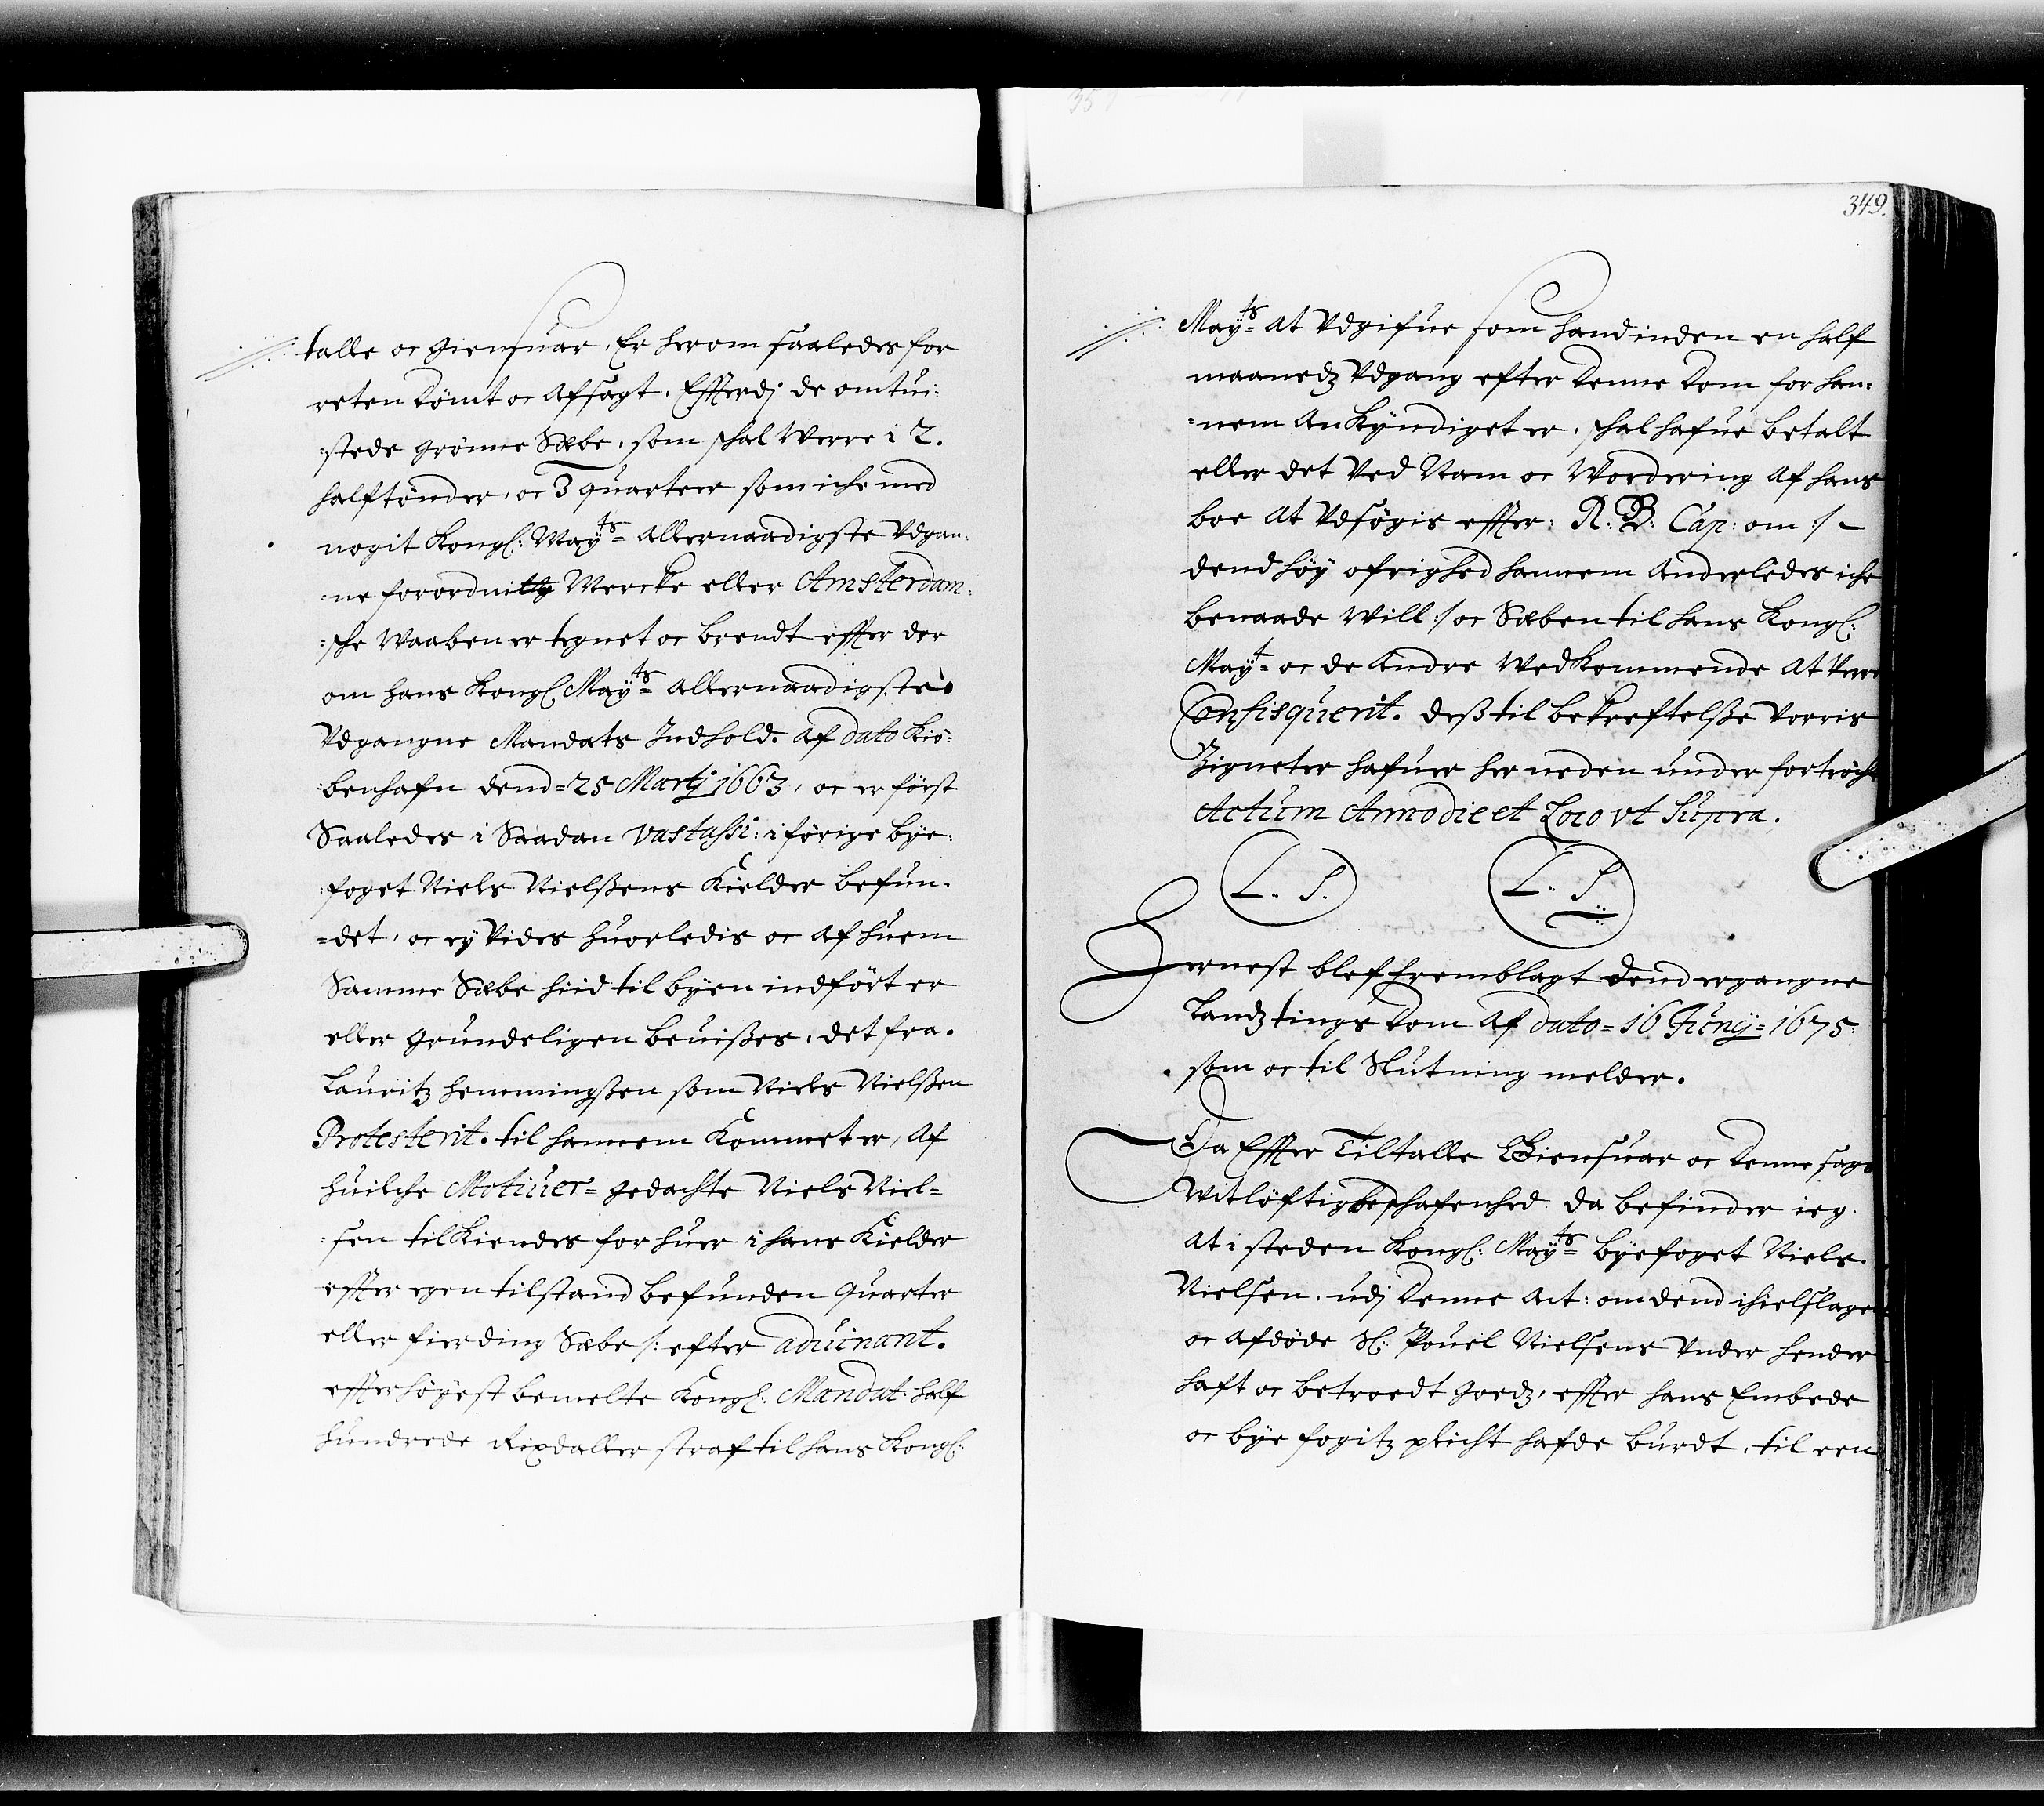 talle oc giensuar, Er herom saaledes for
reten dömt oc afsagt. Effterdj de omtui¬
¬stede grönne Sæbe, som schal Werre i 2.
halftönder, oc 3 quarteer som iche med
nogit Kongl: May:ts Allernaadigste Vdgan¬
¬ne forordnitz Mercke eller Amsterdam¬
¬sche Waaben er tegnet oc brendt effter der
om hans Kongl May:ts allernaadigste
Vdgangne Mandats Indhold. Af dato Kiö¬
¬benhafn dend 25 Martj 1663, oc er först
Saaledes i Saadan Vastassi: i förige bye¬
¬foget Niels Nielßens Kielder befun¬
¬det, oc ey Vides huorledis oc af huem
Samme Sæbe hiid til byen indfört er
eller grundeligen beuißes, det fra
Lauritz Hemmingßen som Niels Nielßen
Protesterit. til hannem Kommet er, Af
huilche Motiuer gedachte Niels Niel¬
¬sen tilkiendes for huer i hans Kielder
effter egen tilstand befunden Quarter
eller fierding Sæbe /: efter aduinant.
effter höyest bemelte Kongl: Mandat: half
hundrede Rixdaller straf til hans Kongl:
349.
May:ts at Vdgifue som hand inden en half
maanedz Vdgang efter denne dom for han¬
¬nem Ankyndiget er, schal hafue betalt
eller det Ved Nam oc Wordering af hans
boe at Vdsögis effter: R: B: Cap: om :/
dend höy öfrighed hannem Anderledes iche
benaade Will :/ oc Sæben til hans Kongl:
May:t oc de Andre Wedkommende at Verre
Confisquerit. Deß til bekreftelße Vorris
Zigneter hafuer her neden under fortröcht
Actum Anno die et Loco vt Supra.
L. S. L. S.
Dernest blef fremblagt dend ergangne
Landztings dom Af dato 16 Junij 1675:
som oc til Slutning melder.
Da Effter Tiltalle Giensuar oc denne sags
Witlöftig beschafenhed da befinder ieg.
at i steden Kongl: May:ts byefoget Niels
Nielsen. udj denne Act: om dend ihielslagen
oc afdöde Sl: Pouel Nielsens Vnder hender
haft oc betroedt goedz, effter hans Embede
oc bye fogitz plicht hafde burdt, til een